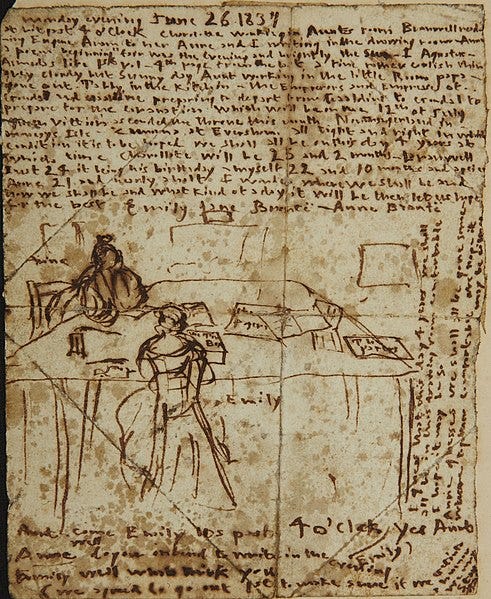 Monday evening June 26 1837
A bit past 4 o'clock Charlotte working in Aunts room Branwell reading
Eugene Aram to her Anne and I writing in the drawing room Anne
a poem beginning fair was the evening and brightly the sun I Agustus
Almedas life 1st v. 4th page from the last a fine rather coolish thin
grey cloudy but Sunny day Aunt working in the little Room papa
gone out Tabby in the Kitchin the Emprerors and Empreses of
Gondal and Gaaldine preparing to depart from Gaaldine to Gondal to
prepare for the coranation which will be on the 12th of July
Queen Vittiora ascended the throne this month Northangerland in
Monceys Isle Zamorna at Eversham. all tight and right in which
condition it is to be hoped we shall all be on this day 4 years at
which time Charllotte will be 25 and 2 months Branwell
just 24 it being his birthday myself 22 and 10 months and a peice
Anne 21 and nearly a half I wonder where we shall be and
how we shall be and what kind of a day it will be then let us hope
for the best Emily Jane Brontë Anne Brontë
Anne
Emily
I guess that this day 4 years we shall
all be in this drawing room comfortable
I hope it may be so
Anne guesses we shall all be gone somewhere
Aunt come Emily Its past 4 o'clock Yes Aunt
Anne well do you intend to write in the evening
Emily well what think you
(we agreed to go out 1st to make sure if we